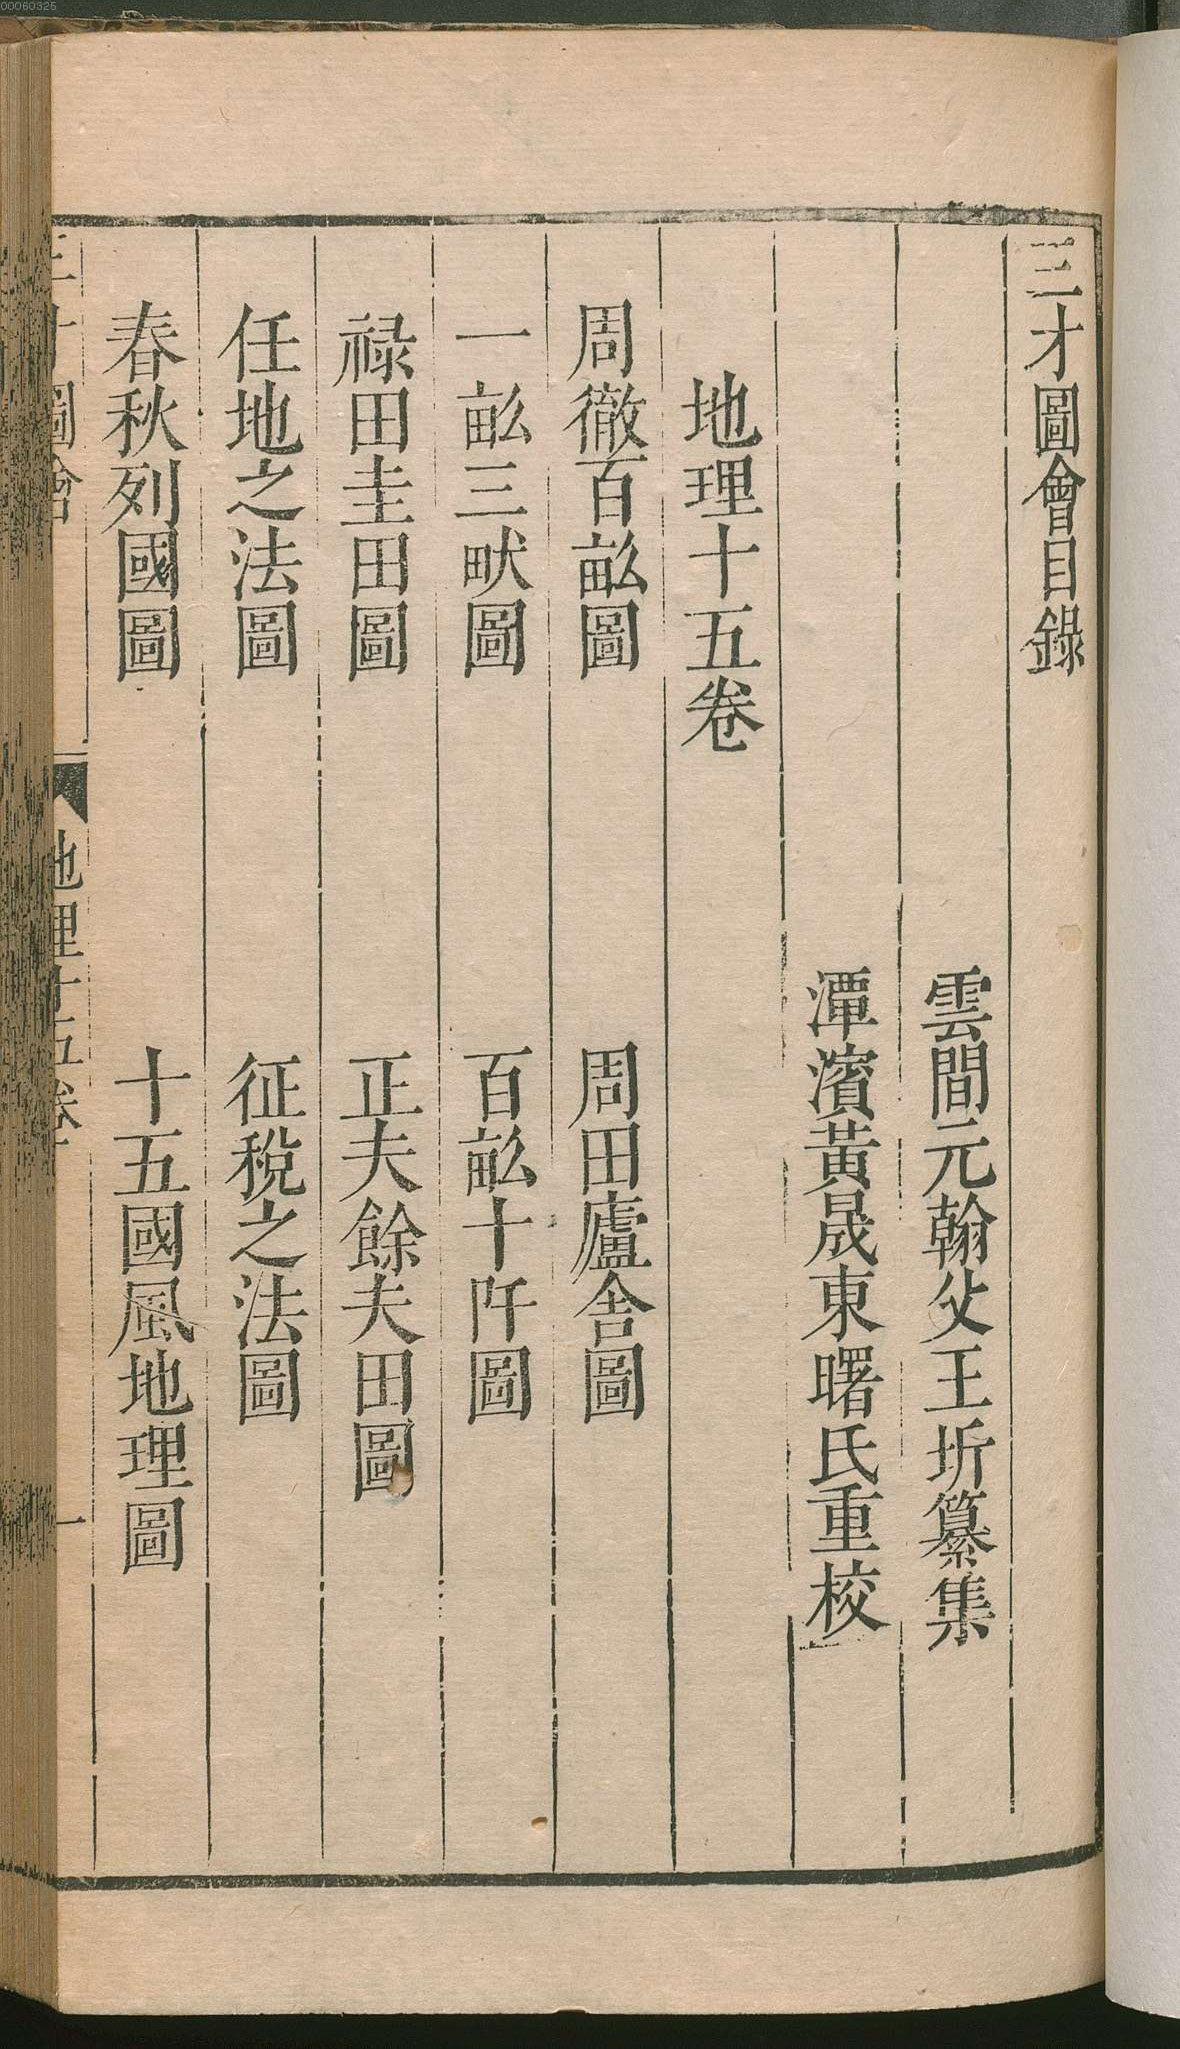 三才圖會目錄
雲間元翰父王圻纂集
潭濱黃晟東曙氏重校
地理十五卷
周徹百畝圖
周田廬舍圖
一畝三畎圖
百畝十阡圖
祿田圭田圖
正夫餘夫田圖
任地之法圖
征稅之法圖
春秋列國圖
十五國風地理圖
三才圖會
地理十五卷
一
00060325